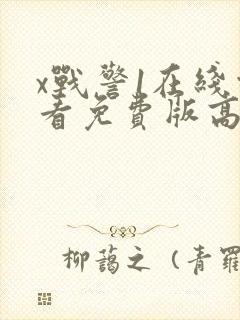 x戰警1在綫
看免費版高
柳藹之（青羅